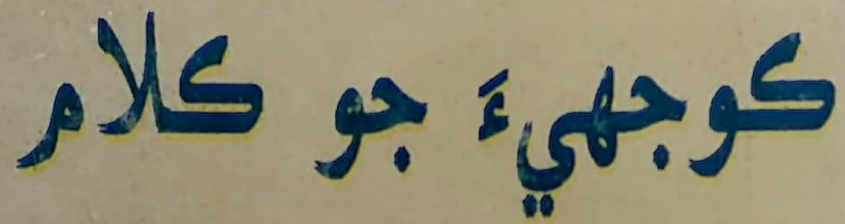 کوجهيءَ جو کلام